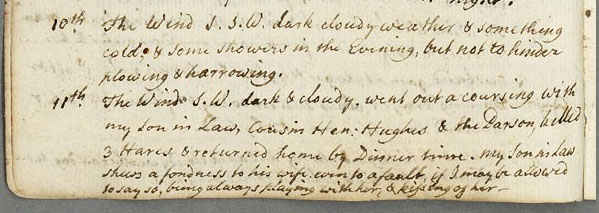 10th The Wind S. S.W. dark cloudy weather & something
cold. & some showers in the Evening, but not to hinder
plowing & harrowing.
11th The Wind S.W. dark & cloudy, went out a coursing with
my Son in Law, Cousin Hen: Hughes & the Parson, killed
3 Hares & returned home by Dinner time. my Son in Law
shews a fondness to his wife even to a fault, if I may be allowed
to say so, being always playing with her, & kissing of her —